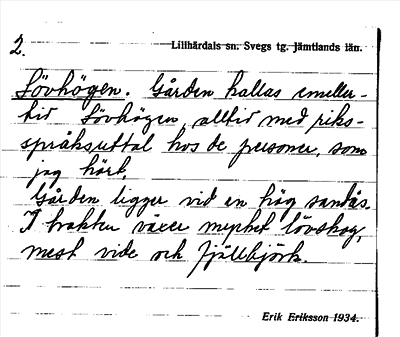 2.
Lillhärdals sn. Svegs tg. Jämtlands län.
Lövhögen. Gården kallas emeller-
tid Lövhögen, alltid med riks-
språksuttal hos de personer, som
jag hört.
Gården ligger vid en hög sandås.
I trakten växer mycket lövskog,
mest vide och fjällbjörk.
Erik Eriksson 1934.